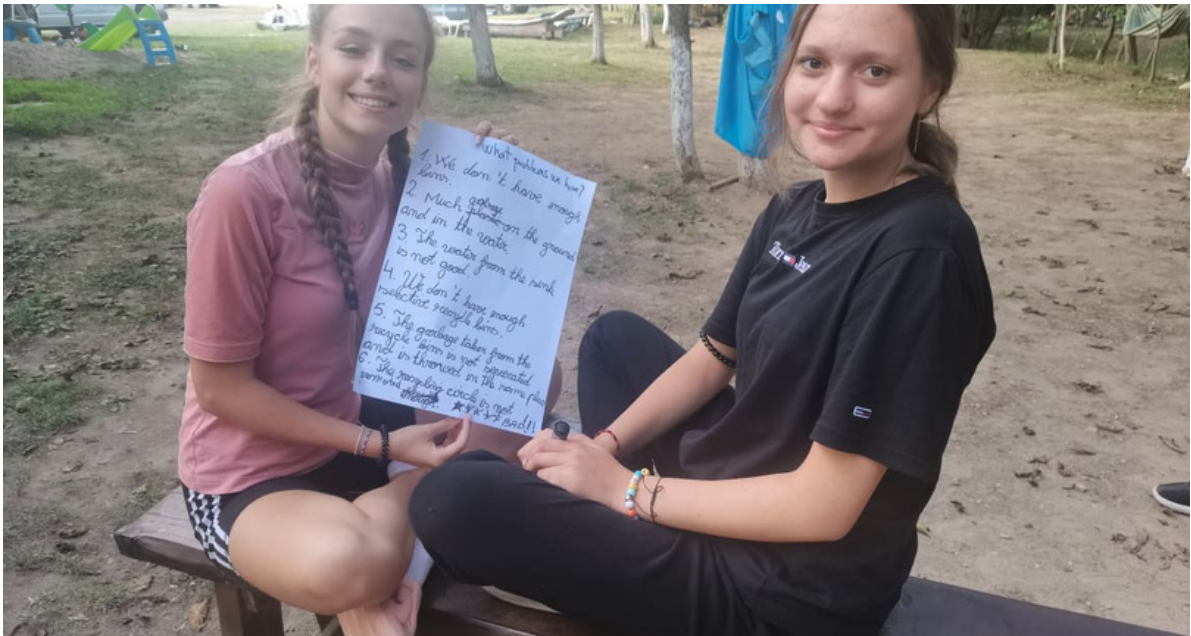 What problems we have?
1. We don't have enough
bins.
2. Much garbage on the ground
and in the water.
3. The water from the sink
is not good.
4. We don't have enough
selective recycle bins.
5. The garbage taken from the
recycle bins is not seperated
and is throwed in the same place
6. The recycling circle is not
BAD!!